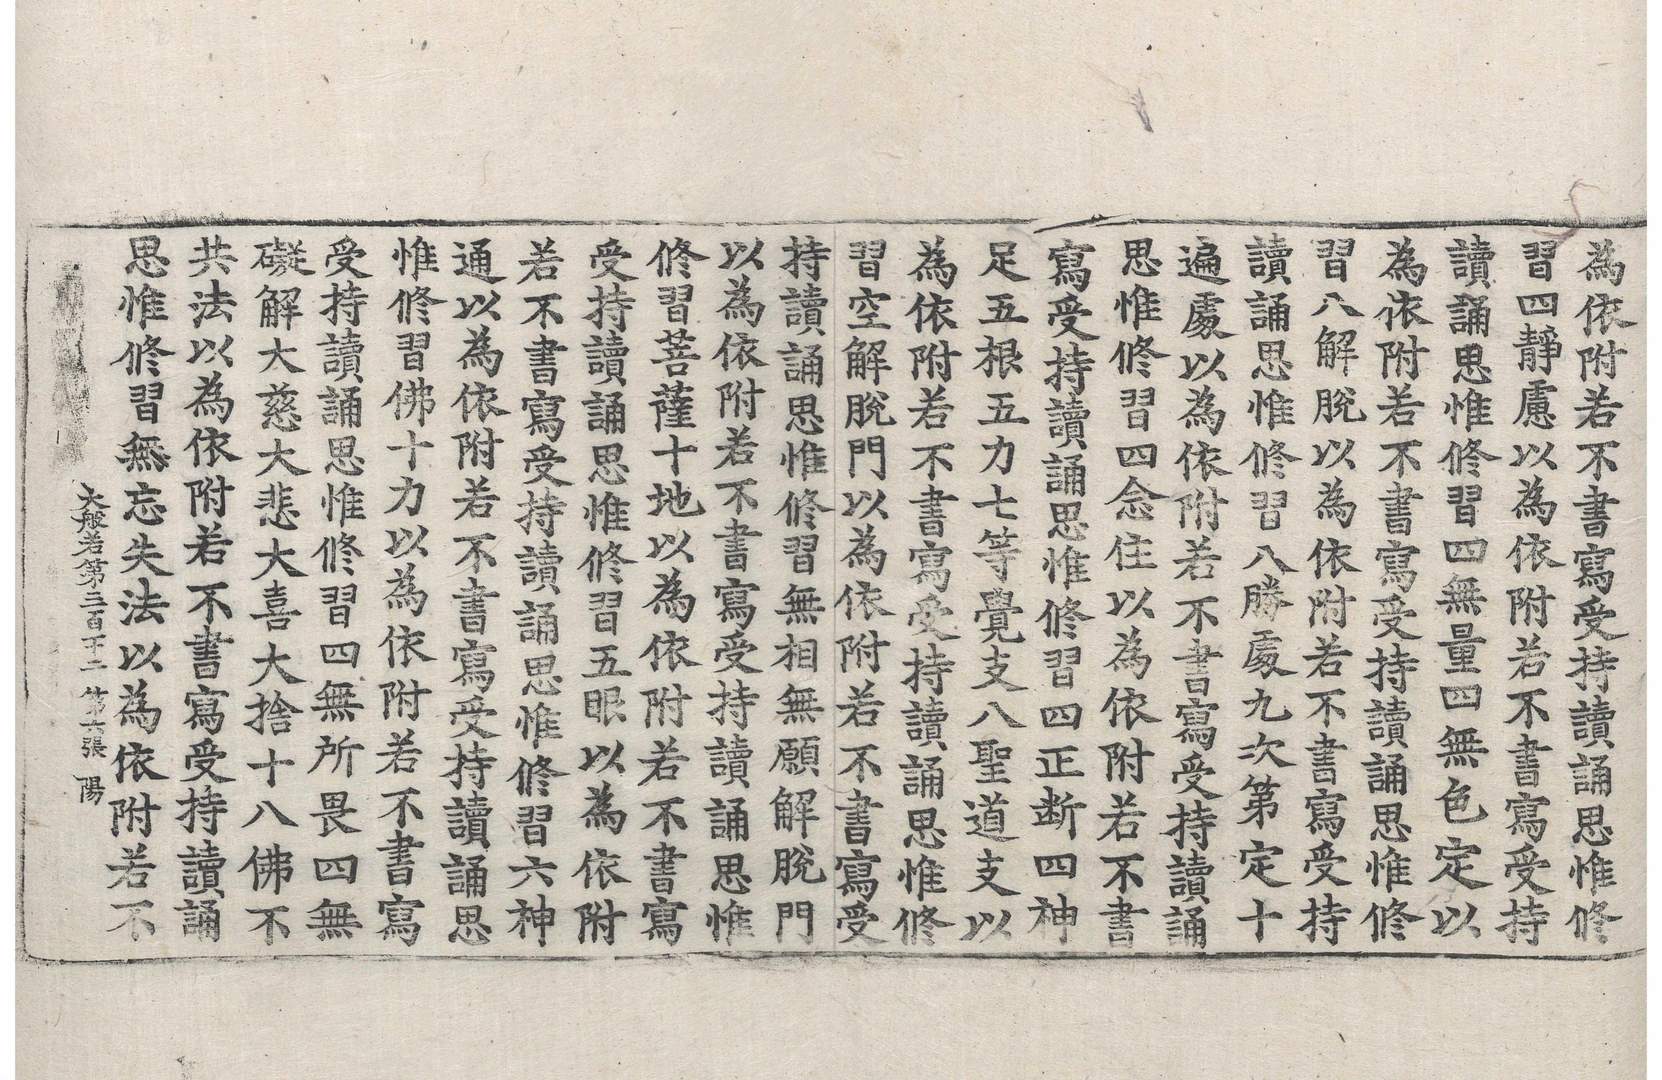 為依附若不書寫受持讀誦思惟修
習四靜慮以為依附若不書寫受持
讀誦思惟修習四無量四無色定以
為依附若不書寫受持讀誦思惟修
習八解脫以為依附若不書寫受持
讀誦思惟修習八勝處九次第定十
遍處以為依附若不書寫受持讀誦
思惟修習四念住以為依附若不書
寫受持讀誦思惟修習四正断四神
足五根五力七等覺支八聖道支以
為依附若不書寫受持讀誦思惟修
習空解脫門以為依附若不書寫受
持讀誦思惟修習無相無願解脫門
以為依附若不書寫受持讀誦思惟
修習菩薩十地以為依附若不書寫
受持讀誦思惟修習五眼以為依附
若不書寫受持讀誦思惟修習六神
通以為依附若不書寫受持讀誦思
惟修習佛十力以為依附若不書寫
受持讀誦思惟修習四無所畏四無
礙解大慈大悲大喜大捨十八佛不
共法以為依附若不書寫受持讀誦
思惟修習無忘失法以為依附若不
大般若第三百十二 第六張 陽